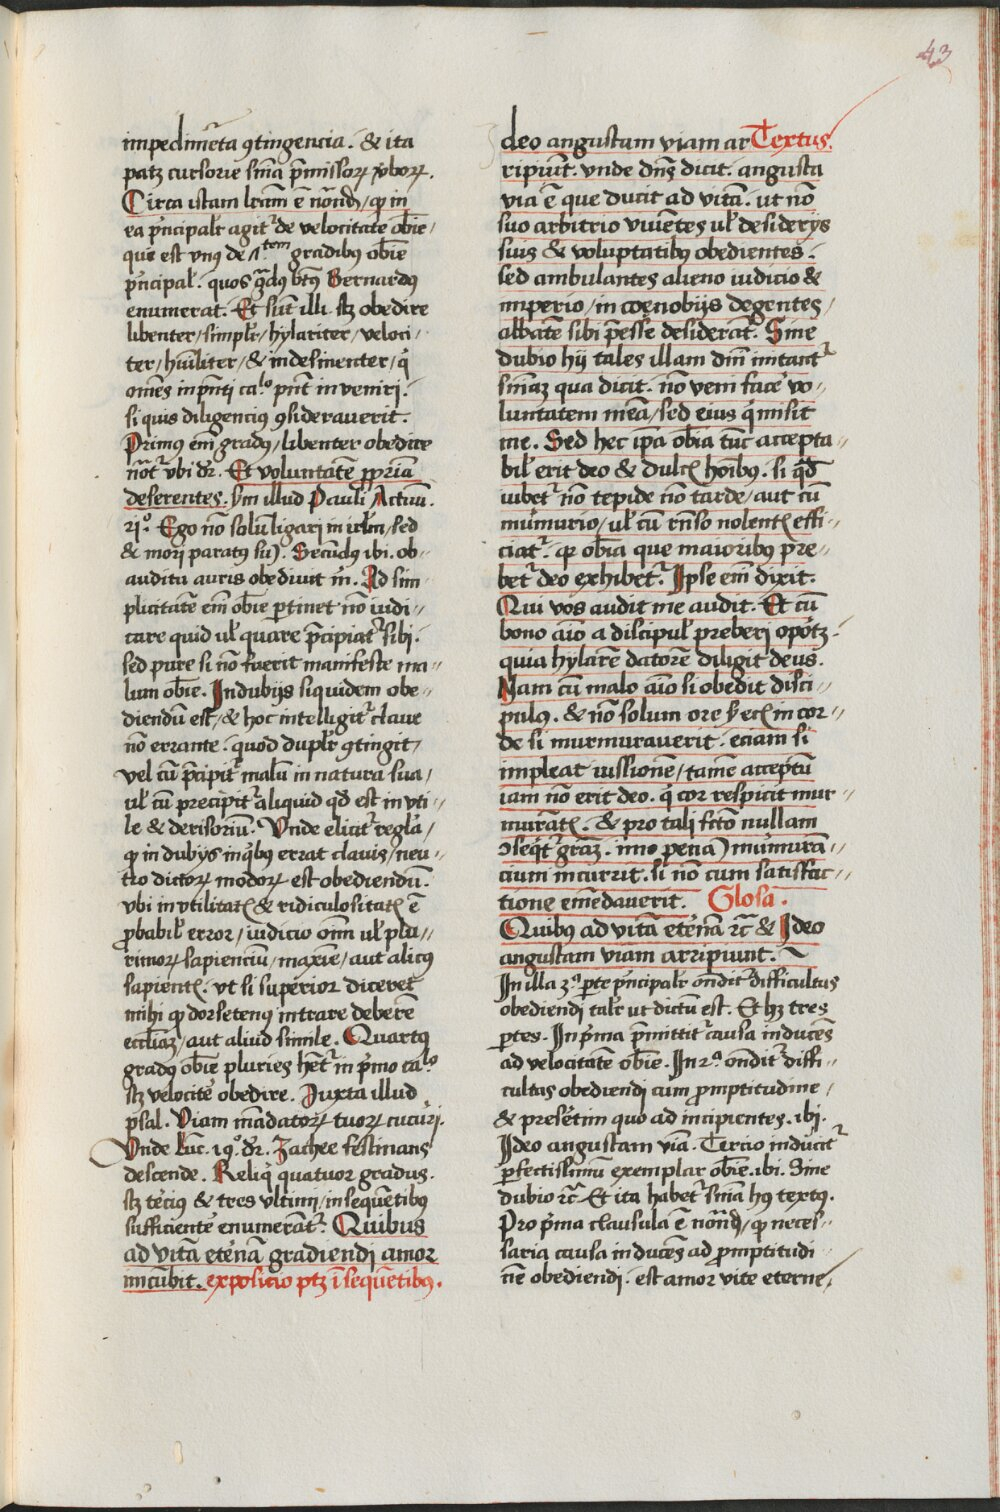 43
impedimēta ꝯtingencia. & ita
patꝫ cursorie sn̄ia p̄missoꝝ v̓boꝝ.
Circa istam lr̄am ē nōnd̄, ꝙ in
ea pͥncipalr̓ agitᷣ de velocitate obīe
que est vnꝰ de 7tem gradibꝰ obīe
pͥncipal̓. quos gᷓdꝰ btūs Bernardꝰ
enumerat. Et sūt illi. sꝫ obedire
libenter / simplr̓ / hylariter / veloci-
ter / hūiliter / & indesinenter / qͥ
om̄es in pn̄ti ca.lo pn̄t inveniri.
si quis diligenciꝰ ꝯsideraverit.
Primꝰ em̄ gradꝰ / libenter obedire
nōtᷣ vbi dr̄. Et voluntatē ꝓpriā
deserentes. sm̄ illud Pauli Actuū.
21.º Ego nō solū ligari in irl̓m / sed
& mori paratꝰ suꝫ. Secūdꝰ ibi. ob-
auditu auris obedivit m̄. Ad sim
plicitatē em̄ obīe ꝑtinet nō iudi-
care quid ul̓ quare p̄cipiatᷣ sibi.
sed pure si nō fuerit manifeste ma-
lum obīe. In dubijs siquidem obe-
diendū est / & hoc intelligitᷣ clave
nō errante. quod duplr̓ ꝯtingit /
vel cū p̄cipitᷣ malū in natura sua /
ul̓ cū precipitᷣ aliquid qd̄ est inuti-
le & derisoriū. Vnde elicitᷣ regl̓a /
ꝙ in dubijs inqͥbꝰ errat clavis / neu-
tro dictoꝝ modoꝝ est obediendū.
vbi inutilitatꝭ & ridiculositatꝭ ē
ꝓbabil̓ error / iudicio om̄m ul̓ plu-
rimoꝝ sapienciū / maxīe / aut alicꝰ
sapientꝭ. vt si superior diceret
mihi ꝙ dorsetenꝰ intrare deberē
eccl̄iaꝫ / aut aliud simile. Quartꝰ
gradꝰ obīe pluries hētᷣ in pͥmo ca.lo
sꝫ velocit̓ obedire. Iuxta illud
psal. Viam mādatoꝝ tuoꝝ cucuri.
Vnde Luc̄. 19.º dr̄. Zachee festinans
descende. Reliqͥ quatuor gradus.
sꝫ t̓ciꝰ & tres vltimi / in sequētibꝰ
sufficient̓ enumerātᷣ. Quibus
ad vitā et̓nā gradiendi amor
incūbit. exposicio ptꝫ ī sequētibꝰ.
deo angustam viam ar Textus.
ripiūt. vnde dn̄s dicit. angusta
via ē que ducit ad vitā. ut nō
suo arbitrio viuētes ul̓ desiderijs
suis & voluptatibꝰ obedientes.
sed ambulantes alieno iudicio &
imperio / in coenobijs degentes /
abbatē sibi p̄esse desiderāt. Sine
dubio hij tales illam dn̄i imitantᷣ
sn̄iaꝫ qua dicit. nō veni fac̓e vo-
luntatem meā / sed eius qͥ misit
me. Sed hec ip̄a obīa tūc accepta-
bil̓ erit deo & dulcꝭ hoībꝰ. si qd̄
iubetᷣ nō tepide nō tarde / aut cū
mͬmurio / ul̓ cū rn̄so nolentꝭ effi-
ciatᷣ. qꝛ obīa que maioribꝰ pre-
betᷣ deo exhibetᷣ. Ipse em̄ dixit.
Qui vos audit me audit. Et cū
bono aīo a discipul̓ preberi opōtꝫ.
quia hylarē datorē diligit deus.
Nam cū malo aīo si obedit disci-
pulꝰ. & nō solum ore ſꝫ ecꝭ in cor-
de si murmuraverit. eciam si
impleat iussionē / tamē acceptū
iam nō erit deo. qͥ cor respicit mur-
murātꝭ. & pro tali fcto nullam
ꝯseqͥtᷣ grāꝫ. imo penaꝫ mͬmurā-
cium incurrit. si nō cum satisfac-
tione emēdaverit. Glosa.
Quibꝰ ad vitā et̓nā ꝛc̄ & Ideo
angustam viam arripiunt.
In illa 3.ª ꝑte pͥncipalr̓ onditᷣ difficultus
obediendi talr̓ ut dictū est. Et hꝫ tres
ꝑtes. In pͥma p̄mittitᷣ causa inducēs
ad velocitatē obīe. In 2.ª onditᷣ diffi-
cultas obediendi cum ꝓmptitudine /
& presētim quo ad incipientes. ibi.
Ideo angustam viā. Tercio inducitᷣ
ꝑfectissimū exemplar obīe. ibi. Sine
dubio ꝛc̄. Et ita habetᷣ sn̄ia hꝰ textꝰ.
Pro pͥma clausula ē nōnd̄, ꝙ neces-
saria causa inducēs ad ꝓmptitudi
nē obediendi. est amor vite eterne,